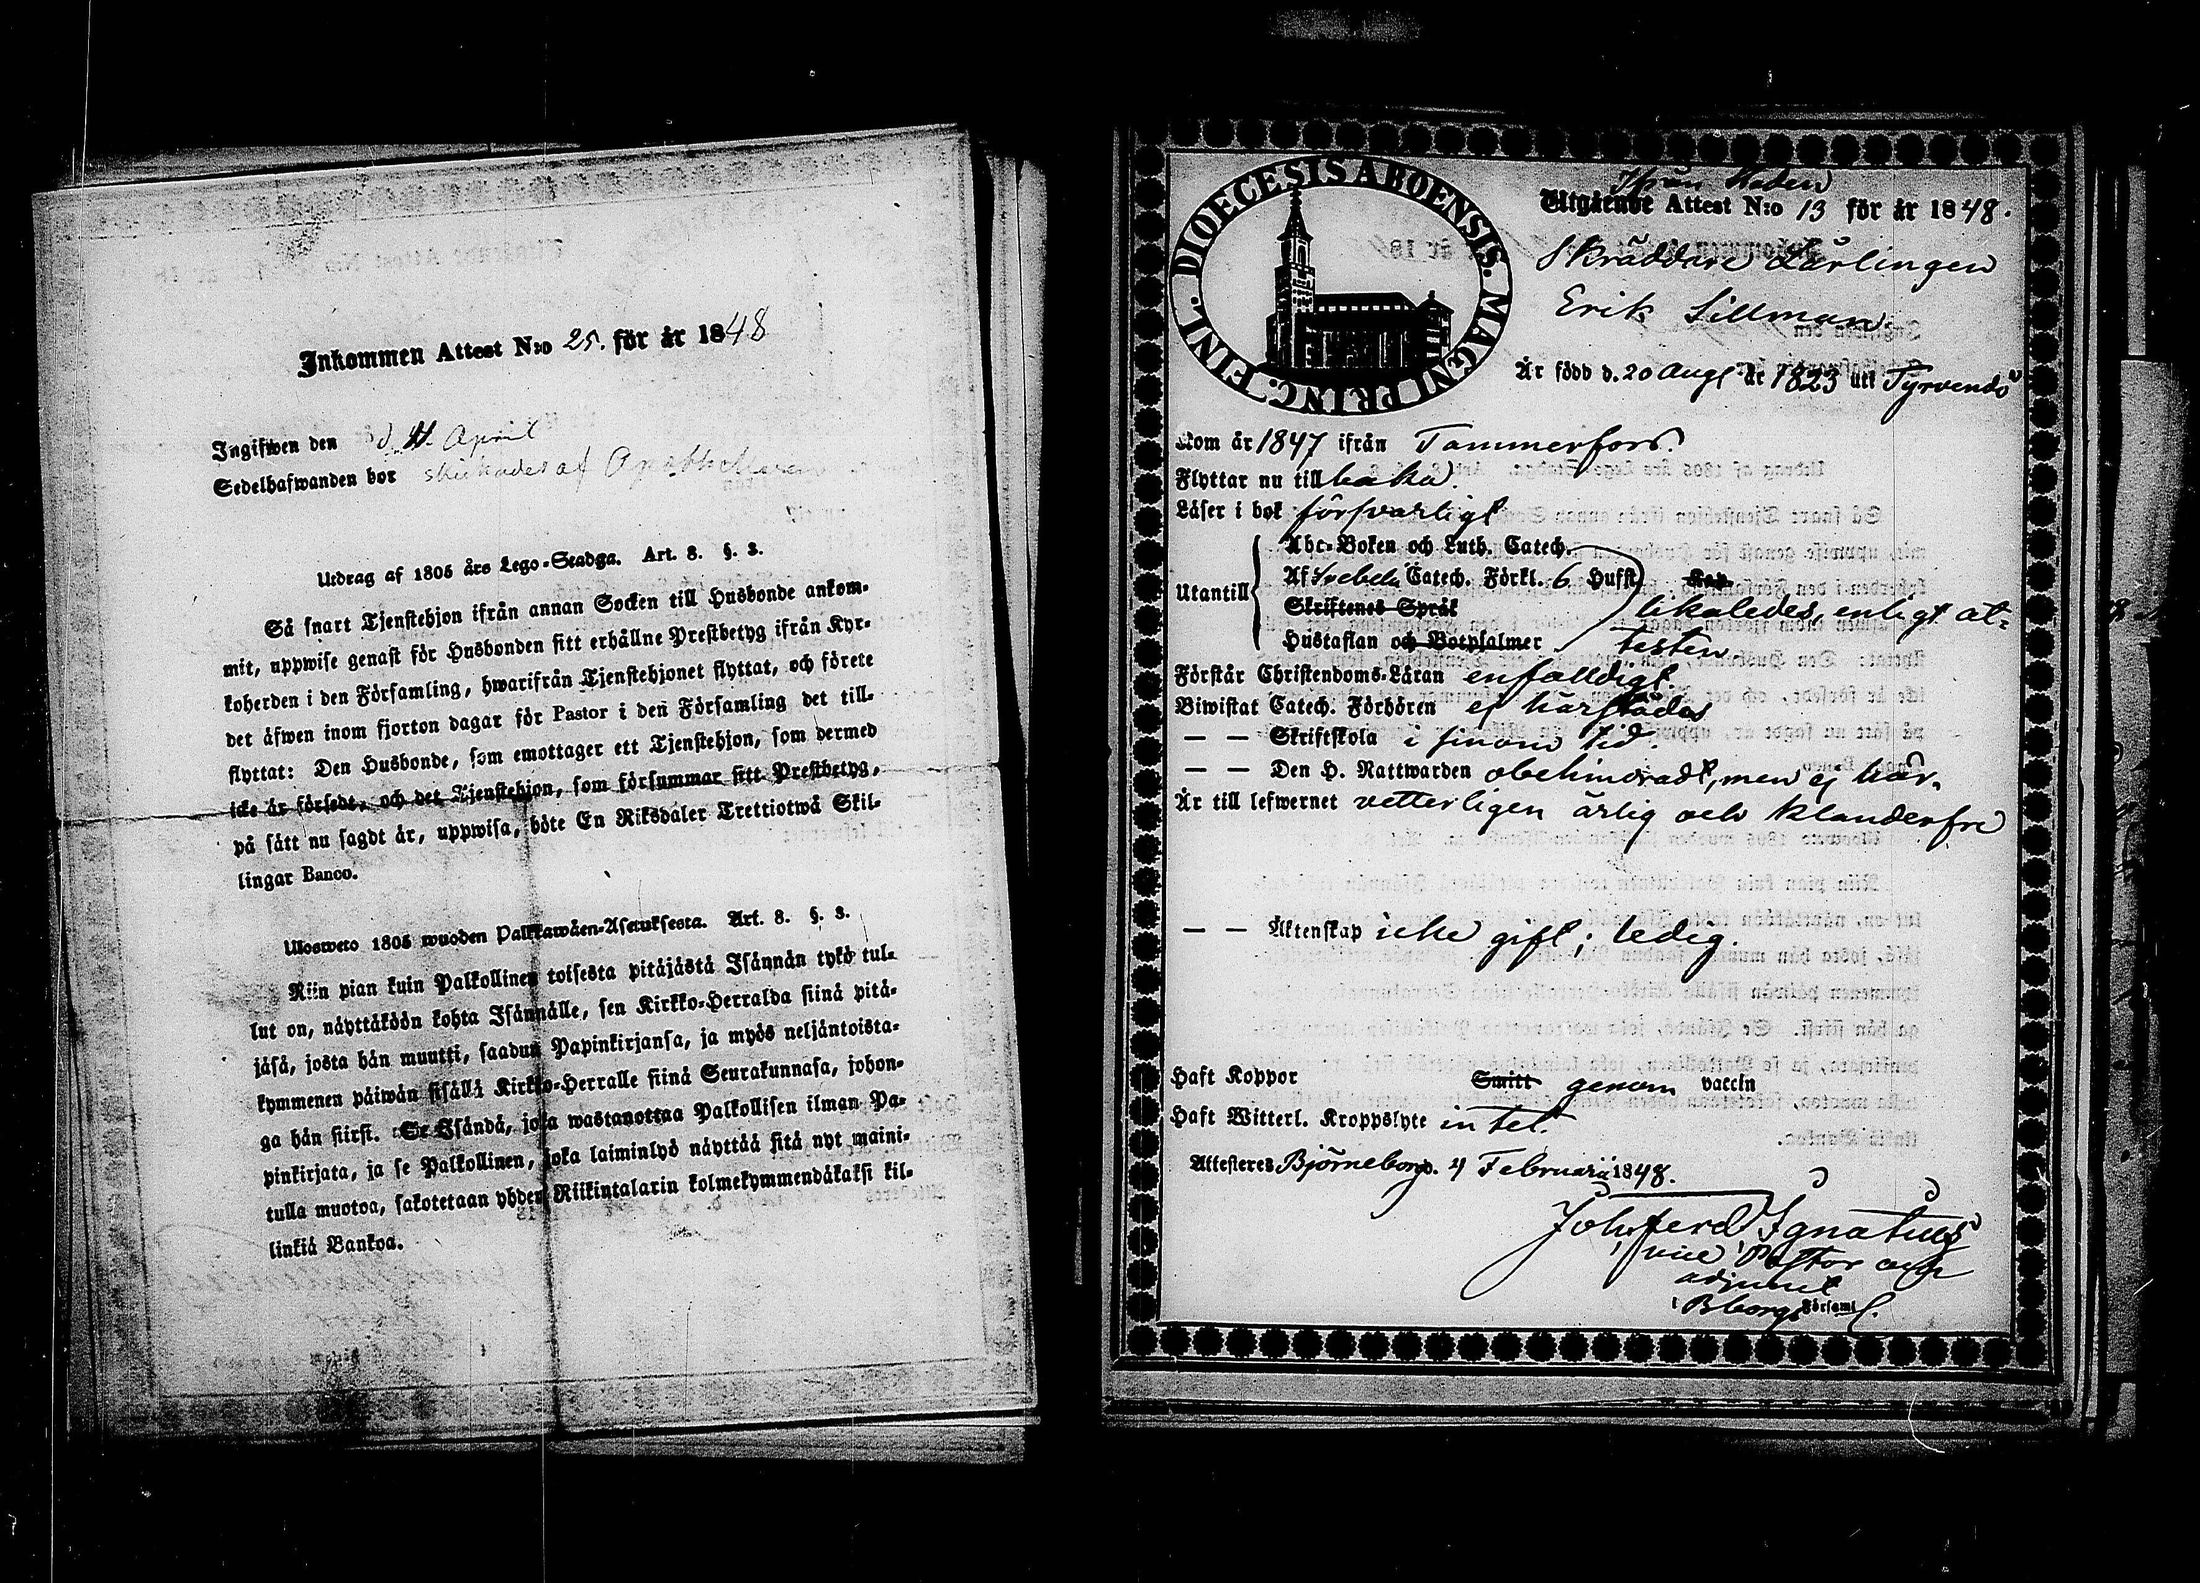 Inkommen Attest N:o 25. för år 1848
Ingifwen den d. 11. April
Sedelhafwanden bor skickades af Apothekaren
Utdrag af 1805 års Lego-Stadga. Art. 8. §. 3.
Så snart Tjenstehjon ifrån annan Socken till Husbonde ankom-
mit, uppwise genast för Husbonden sitt erhållne Prestbetyg ifrån Kyr-
koherden i den Församling, hwarifrån Tjenstehjonet flyttat, och förete
det äfwen inom fjorton dagar för Pastor i den Församling det till-
flyttat: Den Husbonde, som emottager ett Tjenstehjon, som dermed
icke är försedt, och det Tjenstehjon, som försummar sitt Prestbetyg,
på sätt nu sagdt är, uppwisa, böte En Riksdaler Trettiotwå Skil-
lingar Banco.
Ulosweto 1805 wuoden Palkkawäen-Asetuksesta. Art. 8. §. 3.
Niin pian kuin Palkollinen toisesta pitäjästä Isännän tykö tul-
lut on, näyttäköön kohta Isännälle, sen Kirkko-Herralda siinä pitä-
jäsä, josta hän muutti, saadun Papinkirjansa, ja myös neljäntoista-
kymmenen päiwän sisällä Kirkko-Herralle siinä Seurakunnasa, johon-
ga hän siirsi. Se Isändä, joka wastanottaa Palkollisen ilman Pa-
pinkirjata, ja se Palkollinen, joka laiminlyö näyttää sitä nyt maini-
tulla muotoa, sakotetaan yhden Riikintalarin kolmekymmendäkaksi kil-
linkiä Bankoa.
FINL. DIOECESIS ABOENSIS. MAGNI PRINC.
från Staden
Utgående Attest N:o 13 för år 1848.
Skräddare Lärlingen
Erik Sillman
Är född d. 20 Aug är 1823 uti Tyrvendö
Kom år 1847 ifrån Tammerfors.
Flyttar nu till baka.
Läser i bok försvarligt
Utantill
Abc-Boken och Luth. Catech.
Af Svebelii Catech. Förkl. 6 Hufst. Kap.
Skriftenes Språk likaledes, enligt at-
Hustaflan och Botpsalmer testen
Förstår Christendoms-Läran enfalldigt.
Biwistat Catech. Förhören ej härstädes
— — Skriftskola i sinom tid.
— — Den H. Nattwarden obehindradt, men ej här.
Är till lefwernet vetterligen ärlig och klanderfri
— — Äktenskap icke gift; ledig.
Haft Koppor Smitt genom vaccin
Haft Witterl. Kroppslyte intet.
Attesteres Björneborg d. 4 Februarii 1848.
Joh. Ferd. Ignatius
vice Pastor och
adjunct
i Bborgs Församl.